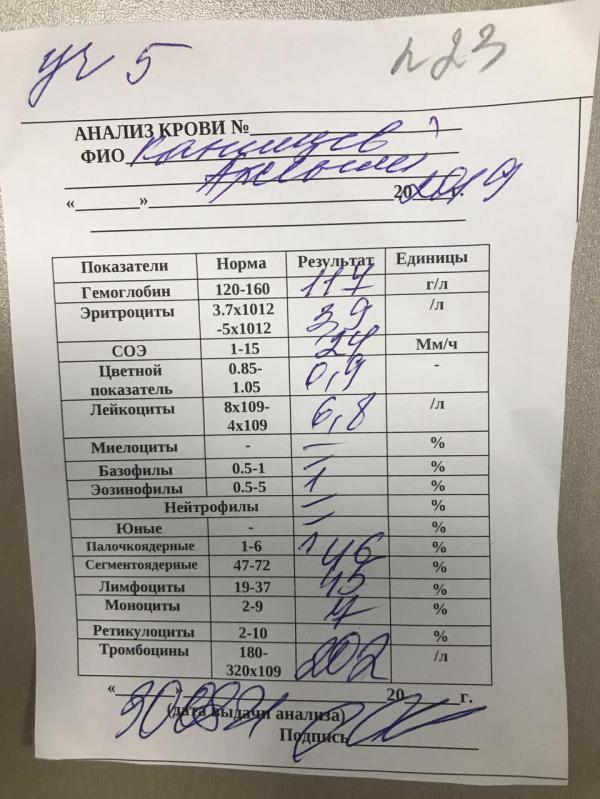 уч 5
л 23
АНАЛИЗ КРОВИ №
ФИО
« » 20 2019 г.
Показатели Норма Результат Единицы
Гемоглобин 120-160 117 г/л
Эритроциты 3.7х1012 -5х1012 3,9 /л
СОЭ 1-15 24 Мм/ч
Цветной показатель 0.85-1.05 0,9 -
Лейкоциты 8х109-4х109 6,8 /л
Миелоциты - – %
Базофилы 0.5-1 – %
Эозинофилы 0.5-5 1 %
Нейтрофилы – %
Юные - – %
Палочкоядерные 1-6 1 %
Сегментоядерные 47-72 46 %
Лимфоциты 19-37 45 %
Моноциты 2-9 7 %
Ретикулоциты 2-10 %
Тромбоцины 180-320х109 202 /л
« » 20 г.
(дата выдачи анализа)
Подпись